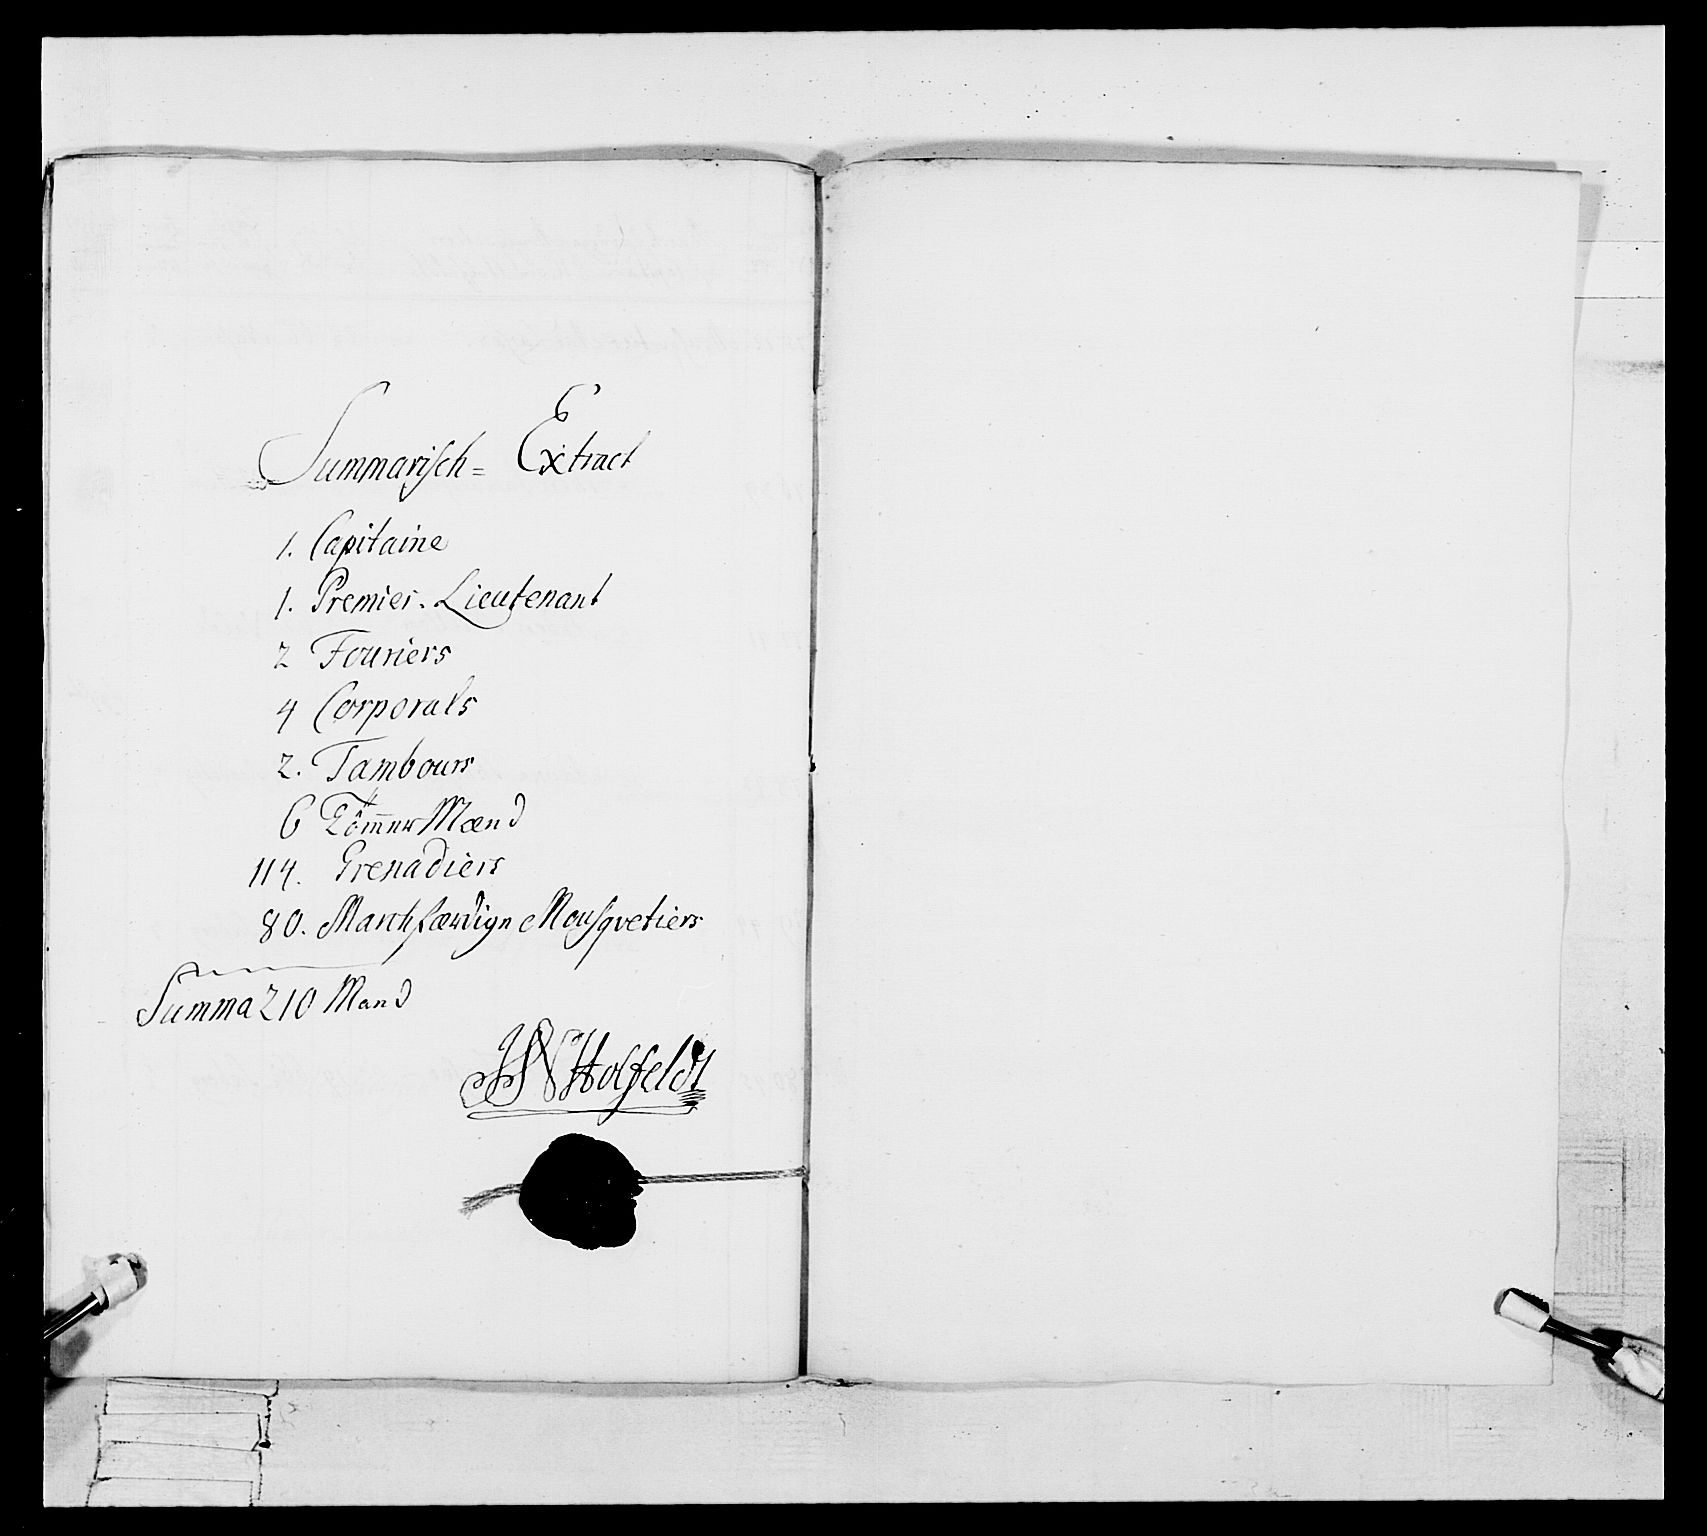 Summarisch= Extract
1. Capitaine
1. Premier. Lieutenant
2 Fouriers
4 Corporals
2. Tambours
6 Tömmer Mænd
114. Grenadiers
80. Marchfærdige Mousqvetiers
Summa 210 Mand
Holfeldt